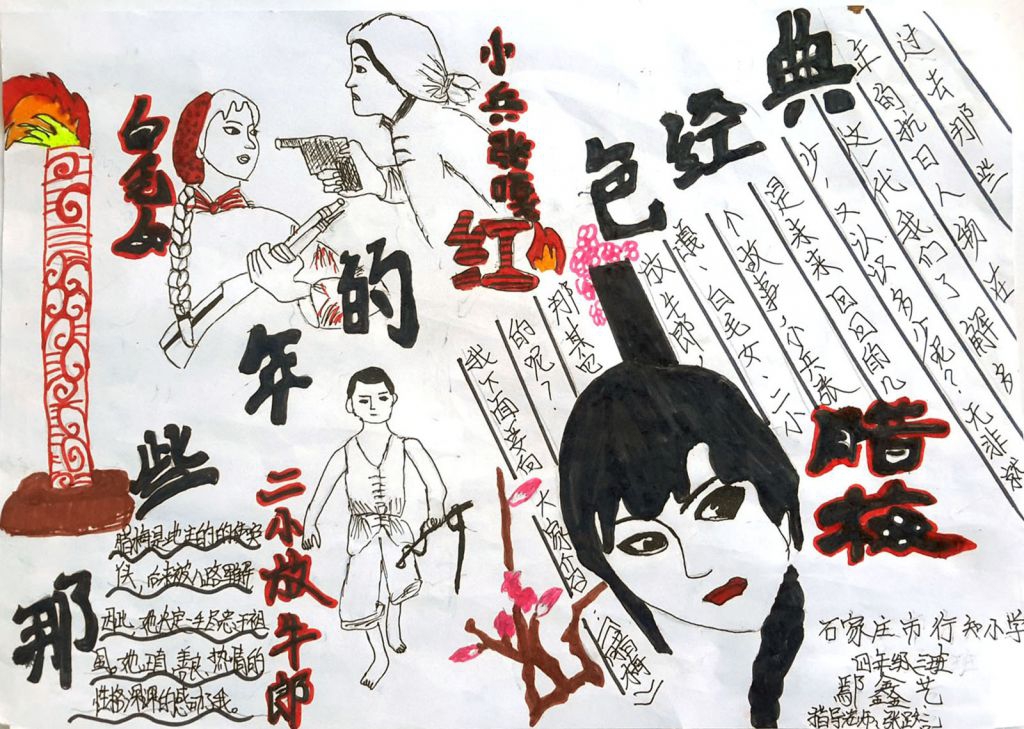 那些年的红色经典
白毛女
小兵张嘎
二小放牛郎
腊梅
过去那些
年的抗日人物在
这一代我们了解多
少,又认识多少呢?无非
是来来回回的几
个故事,小兵张
嘎、白毛女、二小
放牛郎,
那其它
的呢?
我下面要向
大家介
(腊梅)
腊梅是地主的
伙,后来被八路军解
因此,她决定一生尽忠于祖
国,她正直、善良、热情的
性格深深的感动了我。
石家庄市行知小学
四年级三班
鄢鑫艺
指导老师:张